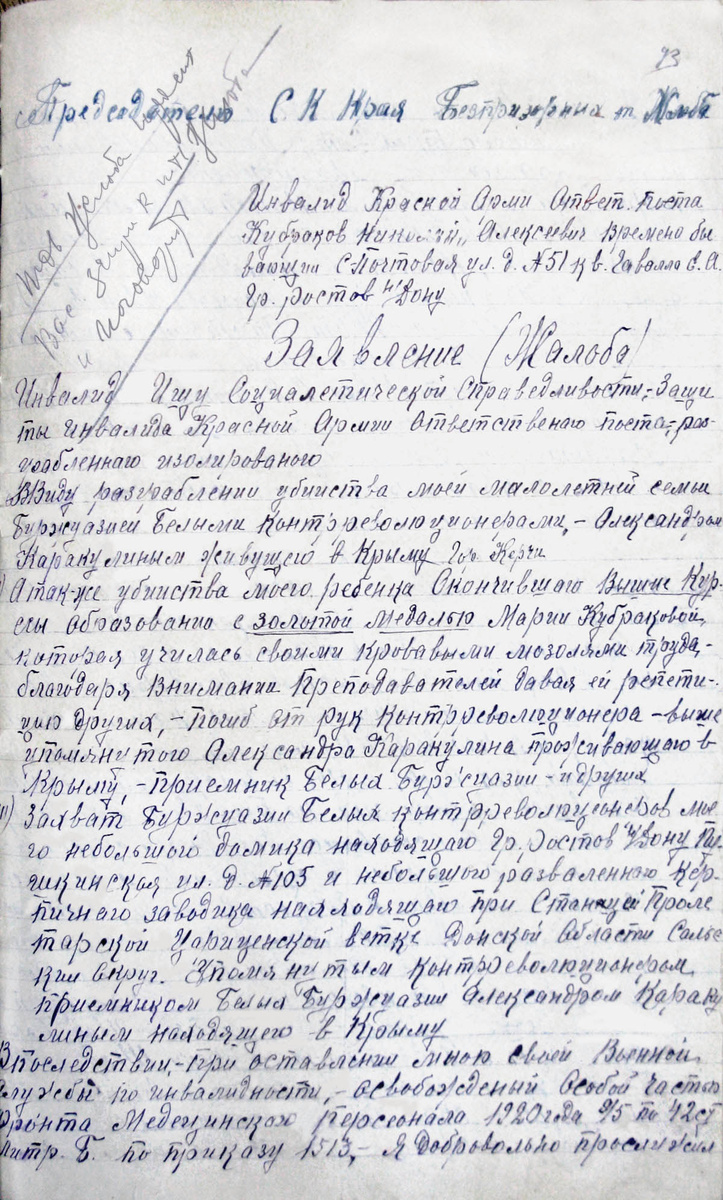 73
Председателю С К Края Безпризорных и Жлоба
тов Жлоба просит
Вас зайти к нему
и поговорит Жлоба
Инвалид Красной Арми Ответ. поста
Кубраков Николай, Алексеевич Времено бы
вающии Почтовая ул. д. №51 кв. Гавалло С. А.
Гр. Ростов н/Дону
Заявление (Жалоба)
Инвалид Ищу Социалетической Справедливости,- Защи
ты инвалида Красной Армии Ответственаго поста,- раз-
грабленнаго изолированого
ВВиду разграблении убииства моей малолетней семьи
Буржуазией Белыми Контрреволюционерами,- Александром
Каракулиным живущего в Крыму Гор. Керчи
А так-же убииства моего ребенка Окончившаго Высшие Кур-
сы образование с золотой медалью Марии Кубраковой,
которая училась своими кровавыми мозолями труда,-
благодаря Внимании Преподавателей давая ей репети-
цию других,- погиб от рук Контрреволюционера - выше
упомянутого Александра Каракулина проживающаго в
Крыму,- приемник Белых Буржуазии - и других
II) Захват Буржуазии Белых контрреволюционеров мое-
го небольшого домика находящаго Гр. Ростов н/Дону Пу-
шкинская ул. д. №105 и небольшого разваленнаго Кер-
пичного заводика находящаго при Станцеи Проле
тарской Царицинской ветке Донской Области Сальс
ким округ. Упомянутым контрреволюционером
приемником Белых Буржуазии Александром Караку
линым находящего в Крыму
Впоследствии,- при оставлении мною своей Военной
службы по инвалидности,- освобожденый Особой частью
Фронта Медецинского персонала 1920 года 9/5 по 42 ст
Литр. Б. по приказу 1513,- Я Добровольно прослужил